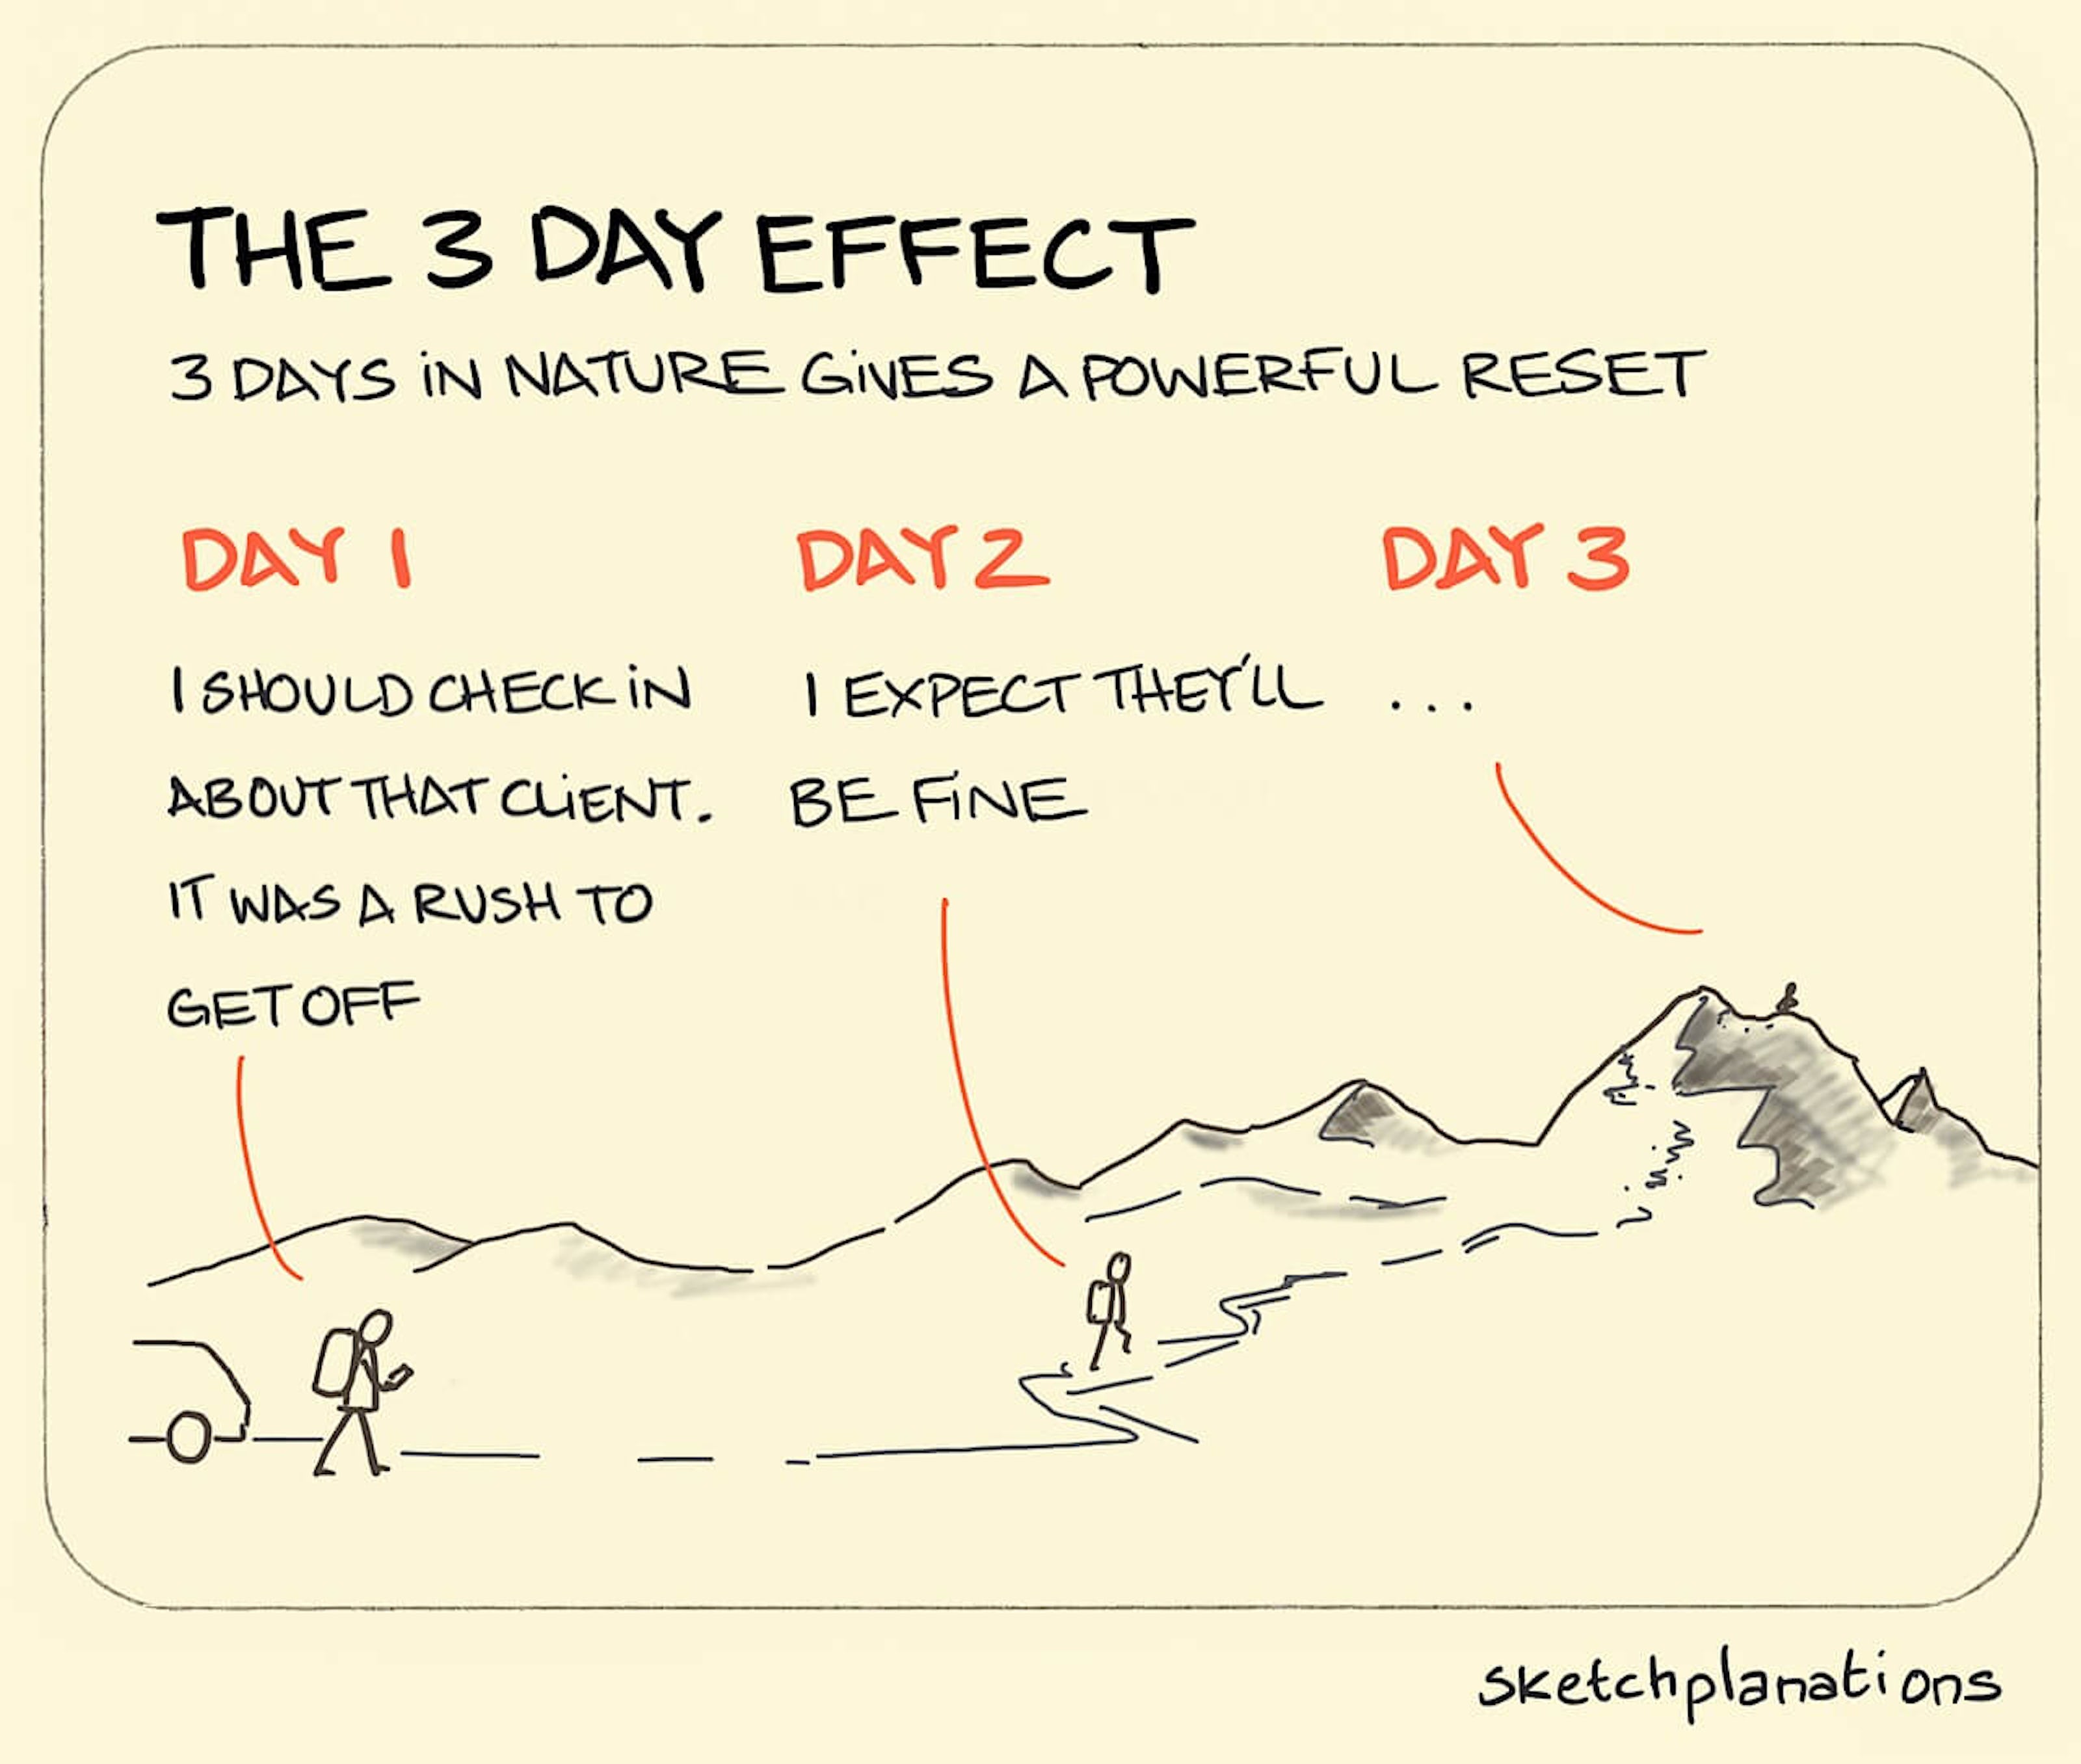 THE 3 DAY EFFECT
3 DAYS IN NATURE GIVES A POWERFUL RESET
DAY 1
I SHOULD CHECK IN
ABOUT THAT CLIENT.
IT WAS A RUSH TO
GET OFF
DAY 2
I EXPECT THEY'LL
BE FINE
DAY 3
...
sketchplanations